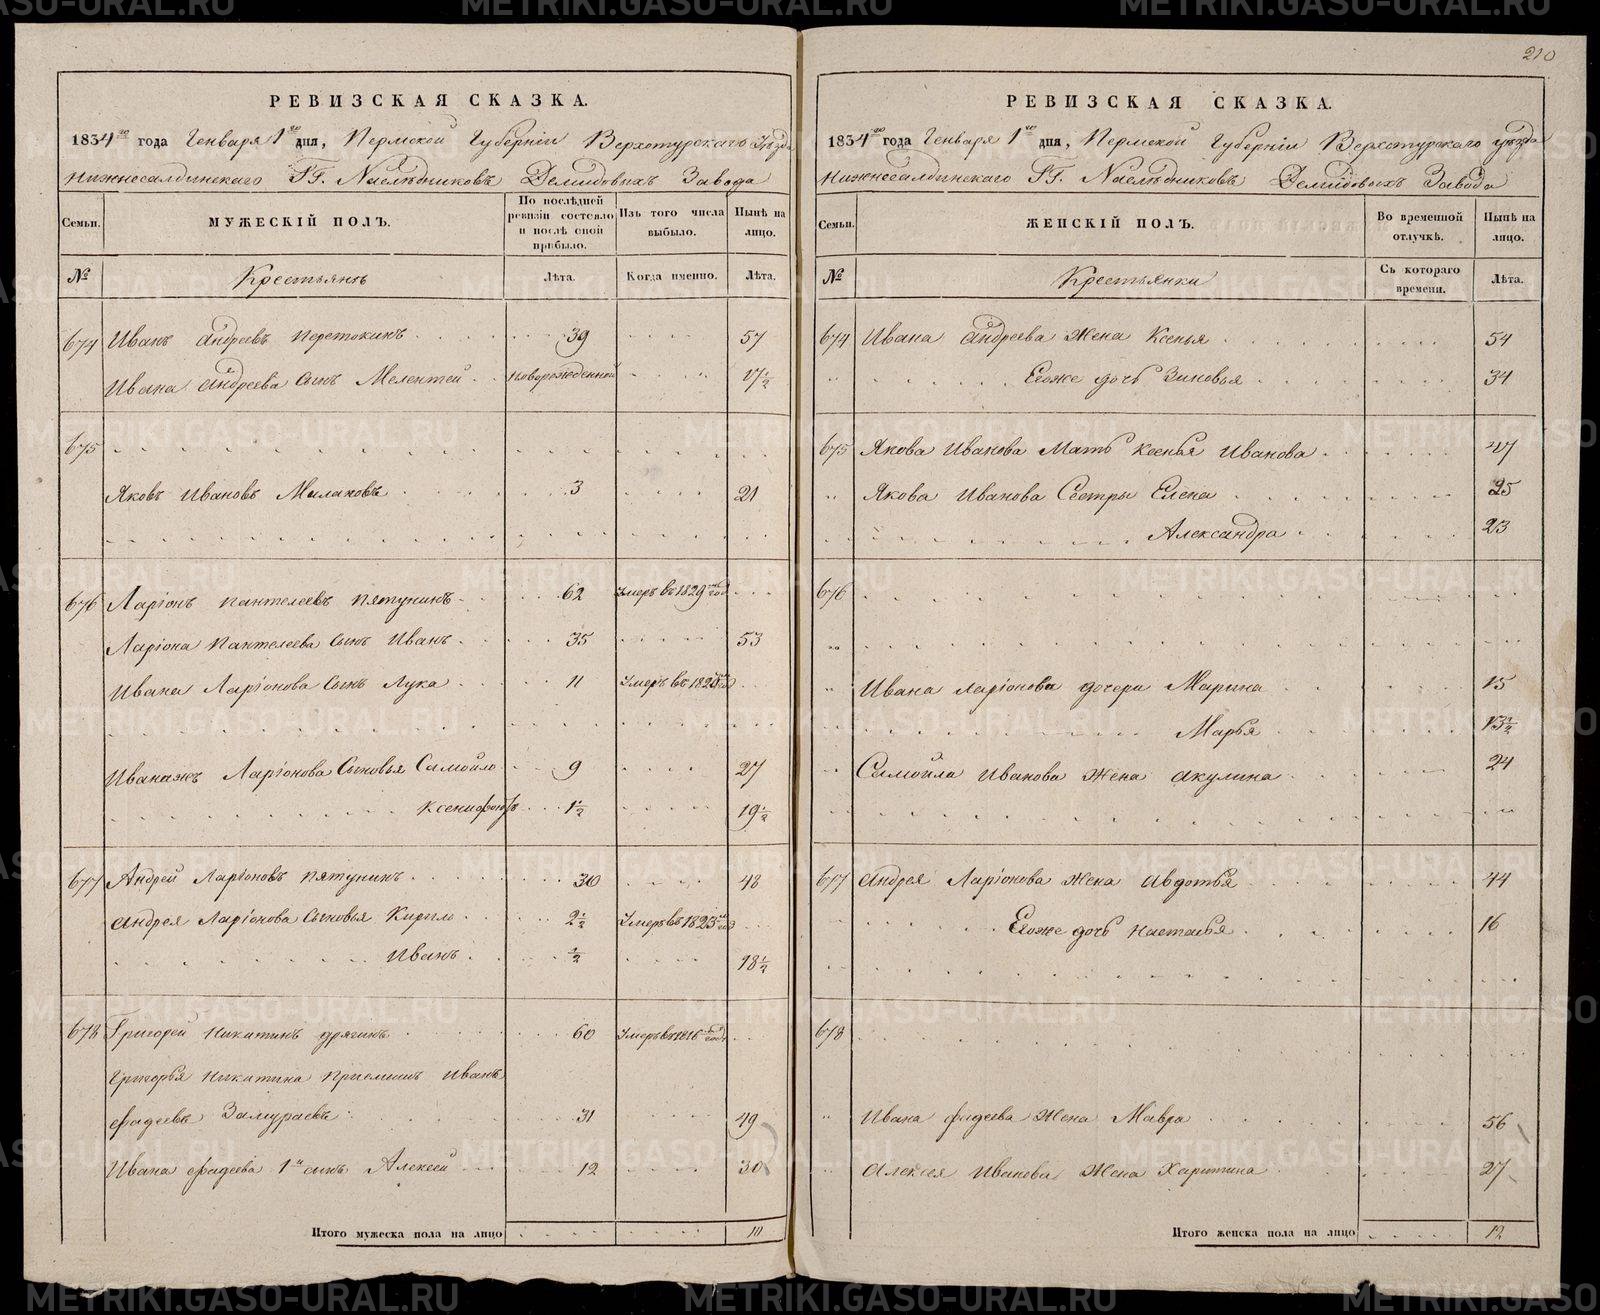 210
РЕВИЗСКАЯ СКАЗКА.
1834го года Генваря 1го дня, Пермской Губерніи Верхотурскаго Уѣзда
Нижнесалдинскаго ГГ. Наслѣдниковъ Демидовыхъ Завода
Семьи. МУЖЕСКІЙ ПОЛЪ. По послѣдней ревизіи состояло и послѣ оной прибыло. Изъ того числа выбыло. Нынѣ на лицо.
№ Крестьянъ Лѣта. Когда именно. Лѣта.
674 Иванъ Андреевъ Перетокинъ 39 57
Ивана Андреева сынъ Мелентей новорожденной 17½
675
Яковъ Ивановъ Малаховъ 3 21
676 Ларіонъ Пантелеевъ Пятунинъ 62 Умеръ въ 1829 год
Ларіона Пантелеева сынъ Иванъ 35 53
Ивана Ларіонова сынъ Лука 11 Умеръ въ год
Иванажъ Ларіонова сыновья Самойло 9 27
Ксенифонтъ 1½ 19½
677 Андрей Ларіоновъ Пятунинъ 30 48
Андрея Ларіонова сыновья Кирило 2½ Умеръ въ 1823 год
Иванъ ½ 18½
678 Григорей Никитинъ 60 Умеръ въ 1816 год
Григорья Никитина приемышъ Иванъ
Фадеевъ Замураевъ 31 49
Ивана Фадеева 1й сынъ Алексей 12 30
Итого мужеска пола на лицо 10
РЕВИЗСКАЯ СКАЗКА.
1834го года Генваря 1го дня, Пермской Губерніи Верхотурскаго уѣзда
Нижнесалдинскаго ГГ. Наслѣдниковъ Демидовыхъ Завода
Семьи. ЖЕНСКІЙ ПОЛЪ. Во временной отлучкѣ. Нынѣ на лицо.
№ Крестьянки Съ котораго времени. Лѣта.
674 Ивана Андреева жена Ксенья 54
Егоже дочь Зиновья 34
675 Якова Иванова мать Ксенья Иванова 47
Якова Иванова сестры Елена 25
Александра 23
676
Ивана Ларіонова дочери Марина 15
Марья 13½
Самойла Иванова жена Акулина 24
677 Андрея Ларіонова жена Авдотья 44
Егоже дочь Настасья 16
678
Ивана Фадеева жена Мавра 56
Алексея Иванова жена Харитина 27
Итого женска пола на лицо 12
METRIKI.GASO-URAL.RU